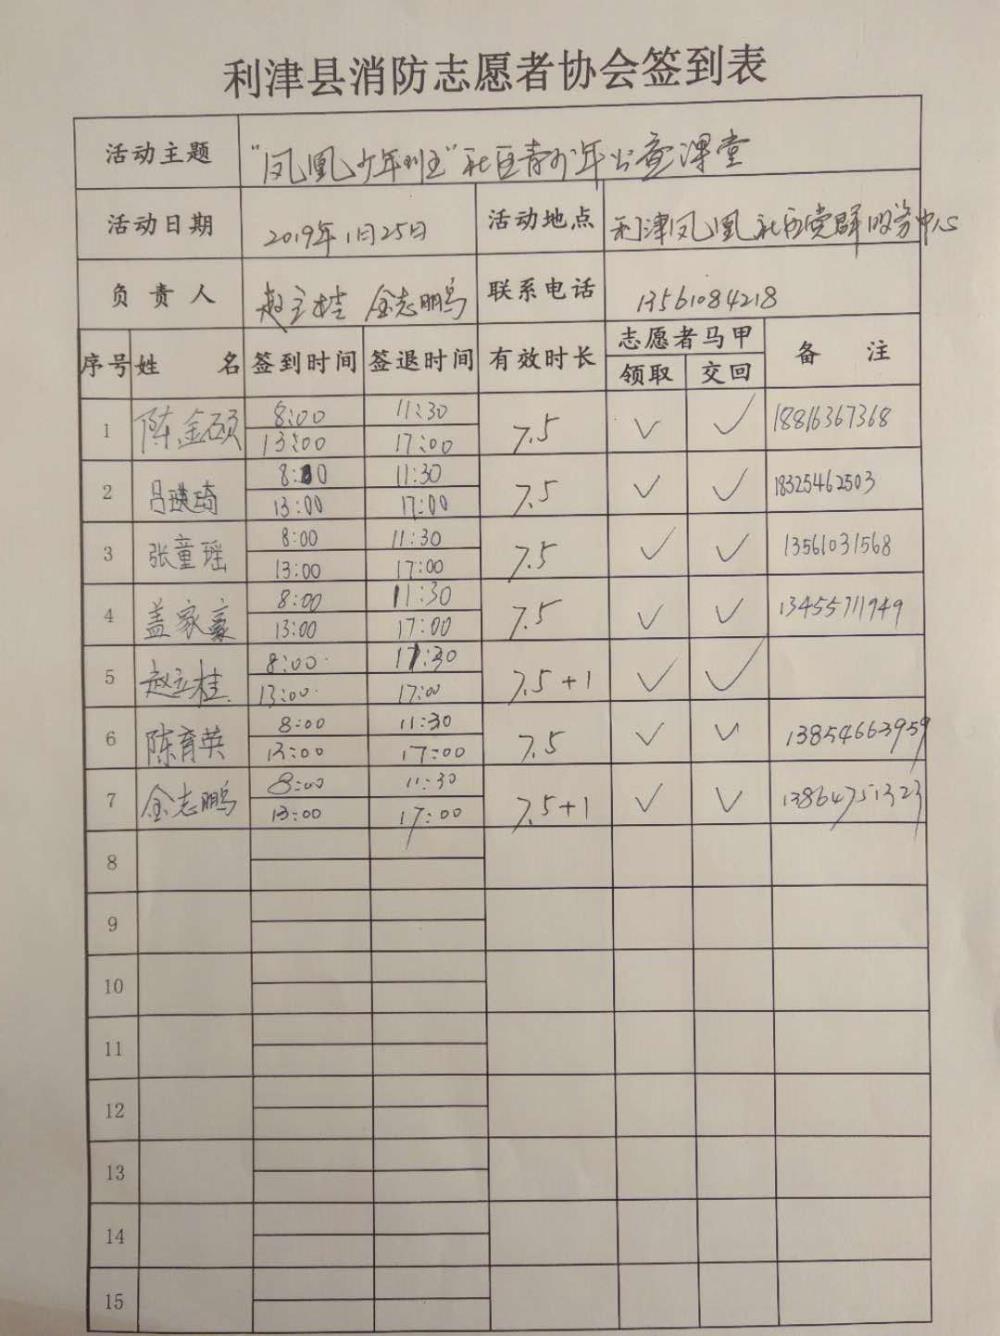 利津县消防志愿者协会签到表
活动主题 "凤凰少年班" 社区青少年公益课堂
活动日期 2019年1月25日 活动地点 利津凤凰社区党群服务中心
负责人 赵立桂 金志鹏 联系电话 13561084218
序号 姓名 签到时间 签退时间 有效时长 志愿者马甲 备注
领取 交回
1 陈金硕 8:00 11:30 7.5 ✓ ✓ 18816367368
13:00 17:00
2 吕瑛琦 8:30 11:30 7.5 ✓ ✓ 18325462503
13:00 17:00
3 张童瑶 8:00 11:30 7.5 ✓ ✓ 13561031568
13:00 17:00
4 盖家豪 8:00 11:30 7.5 ✓ ✓ 13455711949
13:00 17:00
5 赵立桂 8:00 11:30 7.5+1 ✓ ✓
13:00 17:00
6 陈育英 8:00 11:30 7.5 ✓ ✓ 13854663959
13:00 17:00
7 金志鹏 8:00 11:30 7.5+1 ✓ ✓ 13864751323
13:00 17:00
8
9
10
11
12
13
14
15